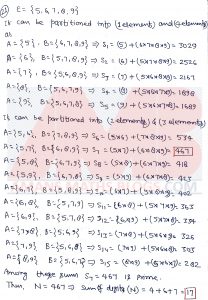 E = {5,6,7,8,9}
It can be partitioned into (1 element) and (4 elements)
as
A={5}, B={6,7,8,9} ⇒ S1 = (5) + (6×7×8×9) = 3029
A={6}, B={5,7,8,9} ⇒ S2 = (6) + (5×7×8×9) = 2526
A={7}, B={5,6,8,9} ⇒ S3 = (7) + (5×6×8×9) = 2167
A={8}, B={5,6,7,9} ⇒ S4 = (8) + (5×6×7×9) = 1898
A={9}, B={5,6,7,8} ⇒ S5 = (9) + (5×6×7×8) = 1689
It can be partitioned into (2 elements) & (3 elements)
A={5,6}, B={7,8,9} ⇒ S6 = (5×6) + (7×8×9) = 534
A={5,7}, B={6,8,9} ⇒ S7 = (5×7) + (6×8×9) = 467
A={5,8}, B={6,7,9} ⇒ S8 = (5×8) + (6×7×9) = 418
A={5,9}, B={6,7,8}
A={6,7}, B={5,8,9}
A={6,8}, B={5,7,9}
A={6,9}, B={5,7,8}
A={7,8}, B={5,6,9}
A={7,9}, B={5,6,8}
A={8,9}, B={5,6,7} ⇒ S15 = (8×9) + (5×6×7) = 282
Among these sum S7 = 467 is prime.
Thus, N = 467 ⇒ Sum of digits (N) = 4+6+7 = 17